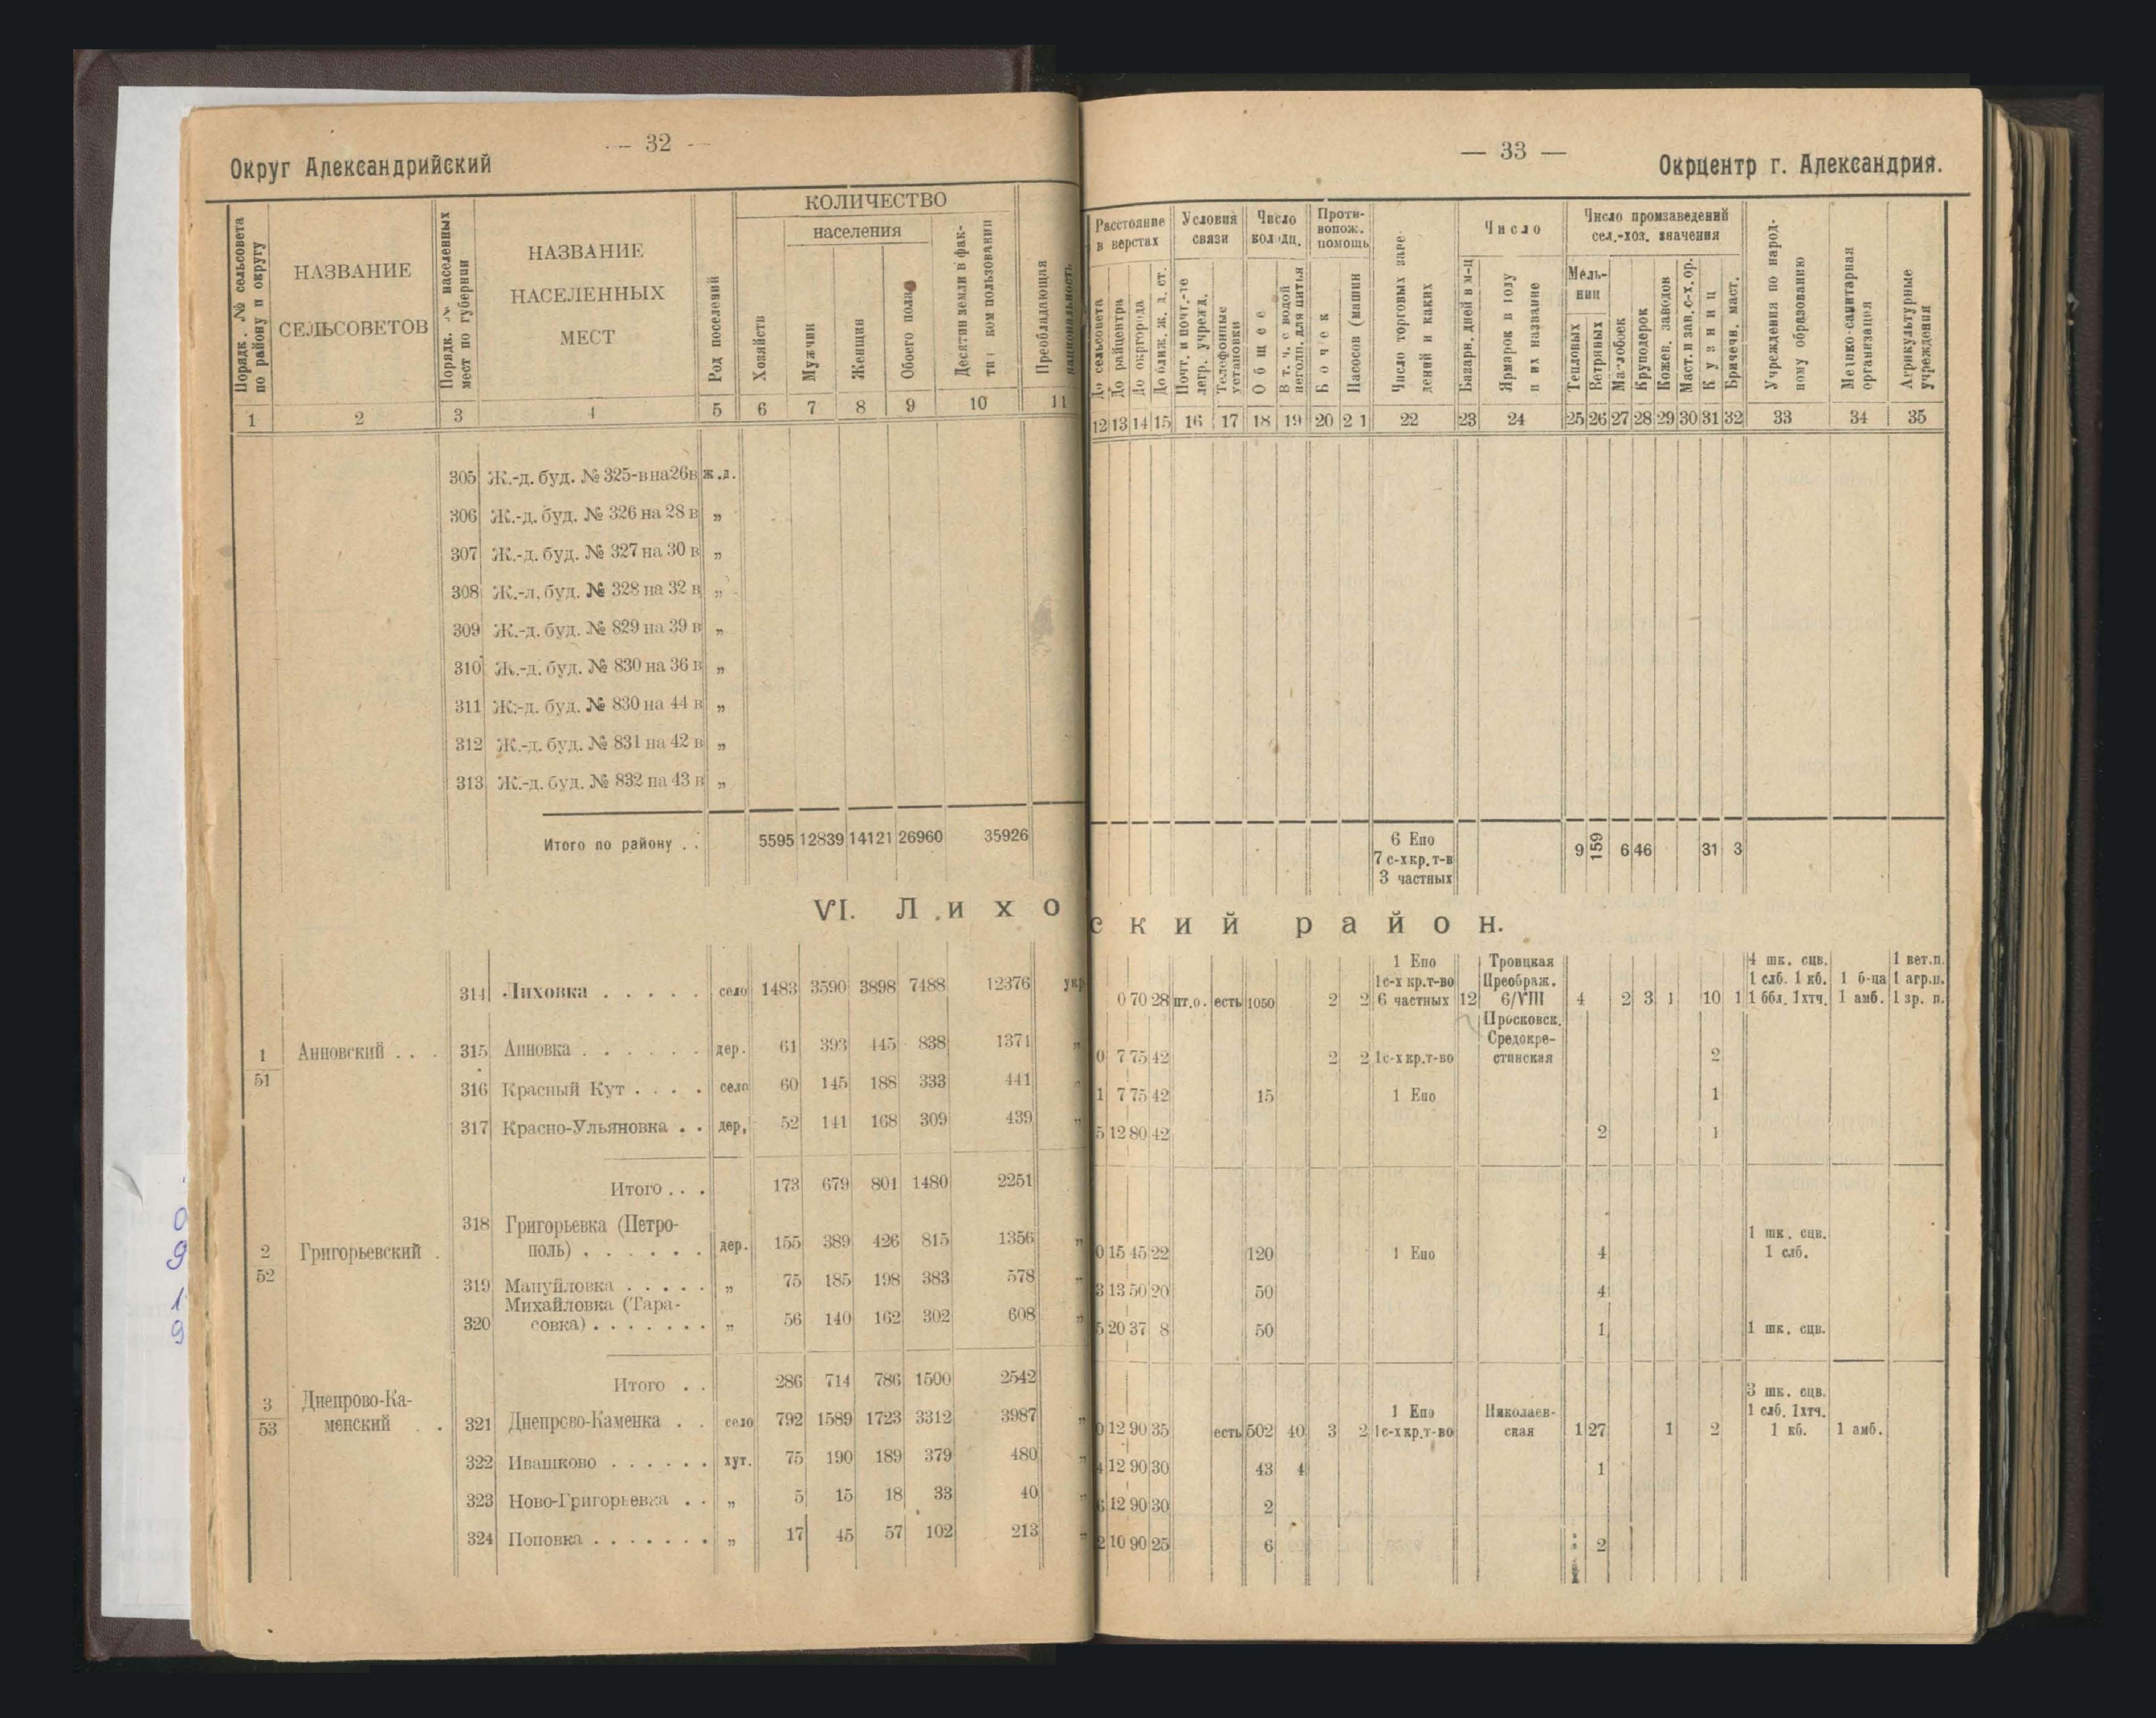 — 32 —
Округ Александрийский
Порядк. №№ сельсовета по району и округу
НАЗВАНИЕ СЕЛЬСОВЕТОВ
Порядк. №№ населенных мест по губернии
НАЗВАНИЕ НАСЕЛЕННЫХ МЕСТ
Род поселений
КОЛИЧЕСТВО
населения
Хозяйств
Мужчин
Женщин
Обоего пола
Преобладающая национальность
1 2 3 4 5 6 7 8 9 10 11
305 Ж.-д. буд. № 325-в на 26 в ж.д.
306 Ж.-д. буд. № 326 на 28 в „
307 Ж.-д. буд. № 327 на 30 в „
308 Ж.-д. буд. № 328 на 32 в „
309 Ж.-д. буд. № 829 на 39 в „
310 Ж.-д. буд. № 830 на 36 в „
311 Ж.-д. буд. № 830 на 44 в „
312 Ж.-д. буд. № 831 на 42 в „
313 Ж.-д. буд. № 832 на 43 в „
Итого по району . . 5595 12839 14121 26960 35926
VI. Лихо
314 Лиховка . . . . . село 1483 3590 3898 7488 12376 укр
1/51 Анновский . . . 315 Анновка . . . . . . дер. 61 393 445 838 1371 „
316 Красный Кут . . . . село 60 145 188 333 441 „
317 Красно-Ульяновка . . дер, 52 141 168 309 439 „
Итого . . . 173 679 801 1480 2251
318 Григорьевка (Петро-
2/52 Григорьевский . поль) . . . . . . дер. 155 389 426 815 1356 „
319 Мануйловка . . . . . „ 75 185 198 383 578 „
Михайловка (Тара-
320 совка) . . . . . . . „ 56 140 162 302 608 „
Итого . . 286 714 786 1500 2542
3/53 Днепрово-Ка-
менский . . 321 Днепрово-Каменка . . село 792 1589 1723 3312 3987 „
322 Ивашково . . . . . . хут. 75 190 189 379 480 „
323 Ново-Григорьевка . . „ 5 15 18 33 40 „
324 Поповка . . . . . . . „ 17 45 57 102 213 „
— 33 —
Окрцентр г. Александрия.
Расстояние в верстах
До сельсовета
До райцентра
До окргорода
До ближ. ж. д. ст.
Условия связи
Телефонные установки
Число колодц.
Общее
В т. ч. с водой негодн. для питья
Противопож. помощь
Бочек
Насосов (машин
Число торговых заведений и каких
Число
Базарн. дней в м-ц
Ярмарок в году и их название
Число промзаведений сел.-хоз. значения
Мельниц
Тепловых
Ветряных
Маслобоек
Круподерок
Кожев. заводов
Маст. и зав. с-х. ор.
Кузниц
Бричечн. маст.
Учреждения по народному образованию
Медико-санитарная организация
Агрикультурные учреждения
12 13 14 15 16 17 18 19 20 21 22 23 24 25 26 27 28 29 30 31 32 33 34 35
6 Епо
7 с-х кр. т-в
3 частных
9 159 6 46 31 3
ский район.
1 Епо Троицкая 4 шк. сцв. 1 вет.п.
1с-х кр.т-во Преображ. 1 слб. 1 кб. 1 б-ца 1 агр.п.
0 70 28 пт.о. есть 1050 2 2 6 частных 12 6/VIII 4 2 3 1 10 1 1 ббл. 1хтч. 1 амб. 1 зр. п.
Просковск.
Средокре-
0 7 75 42 2 2 1с-х кр.т-во стинская 2
1 7 75 42 15 1 Епо 1
5 12 80 42 2 1
1 шк. сцв.
0 15 45 22 120 1 Епо 4 1 слб.
3 13 50 20 50 4
5 20 37 8 50 1 1 шк. сцв.
3 шк. сцв.
1 Епо Николаев- 1 слб. 1хтч.
0 12 90 35 есть 502 40 3 2 1с-х кр.т-во ская 1 27 1 2 1 кб. 1 амб.
4 12 90 30 43 4 1
12 90 30 2
2 10 90 25 6 2